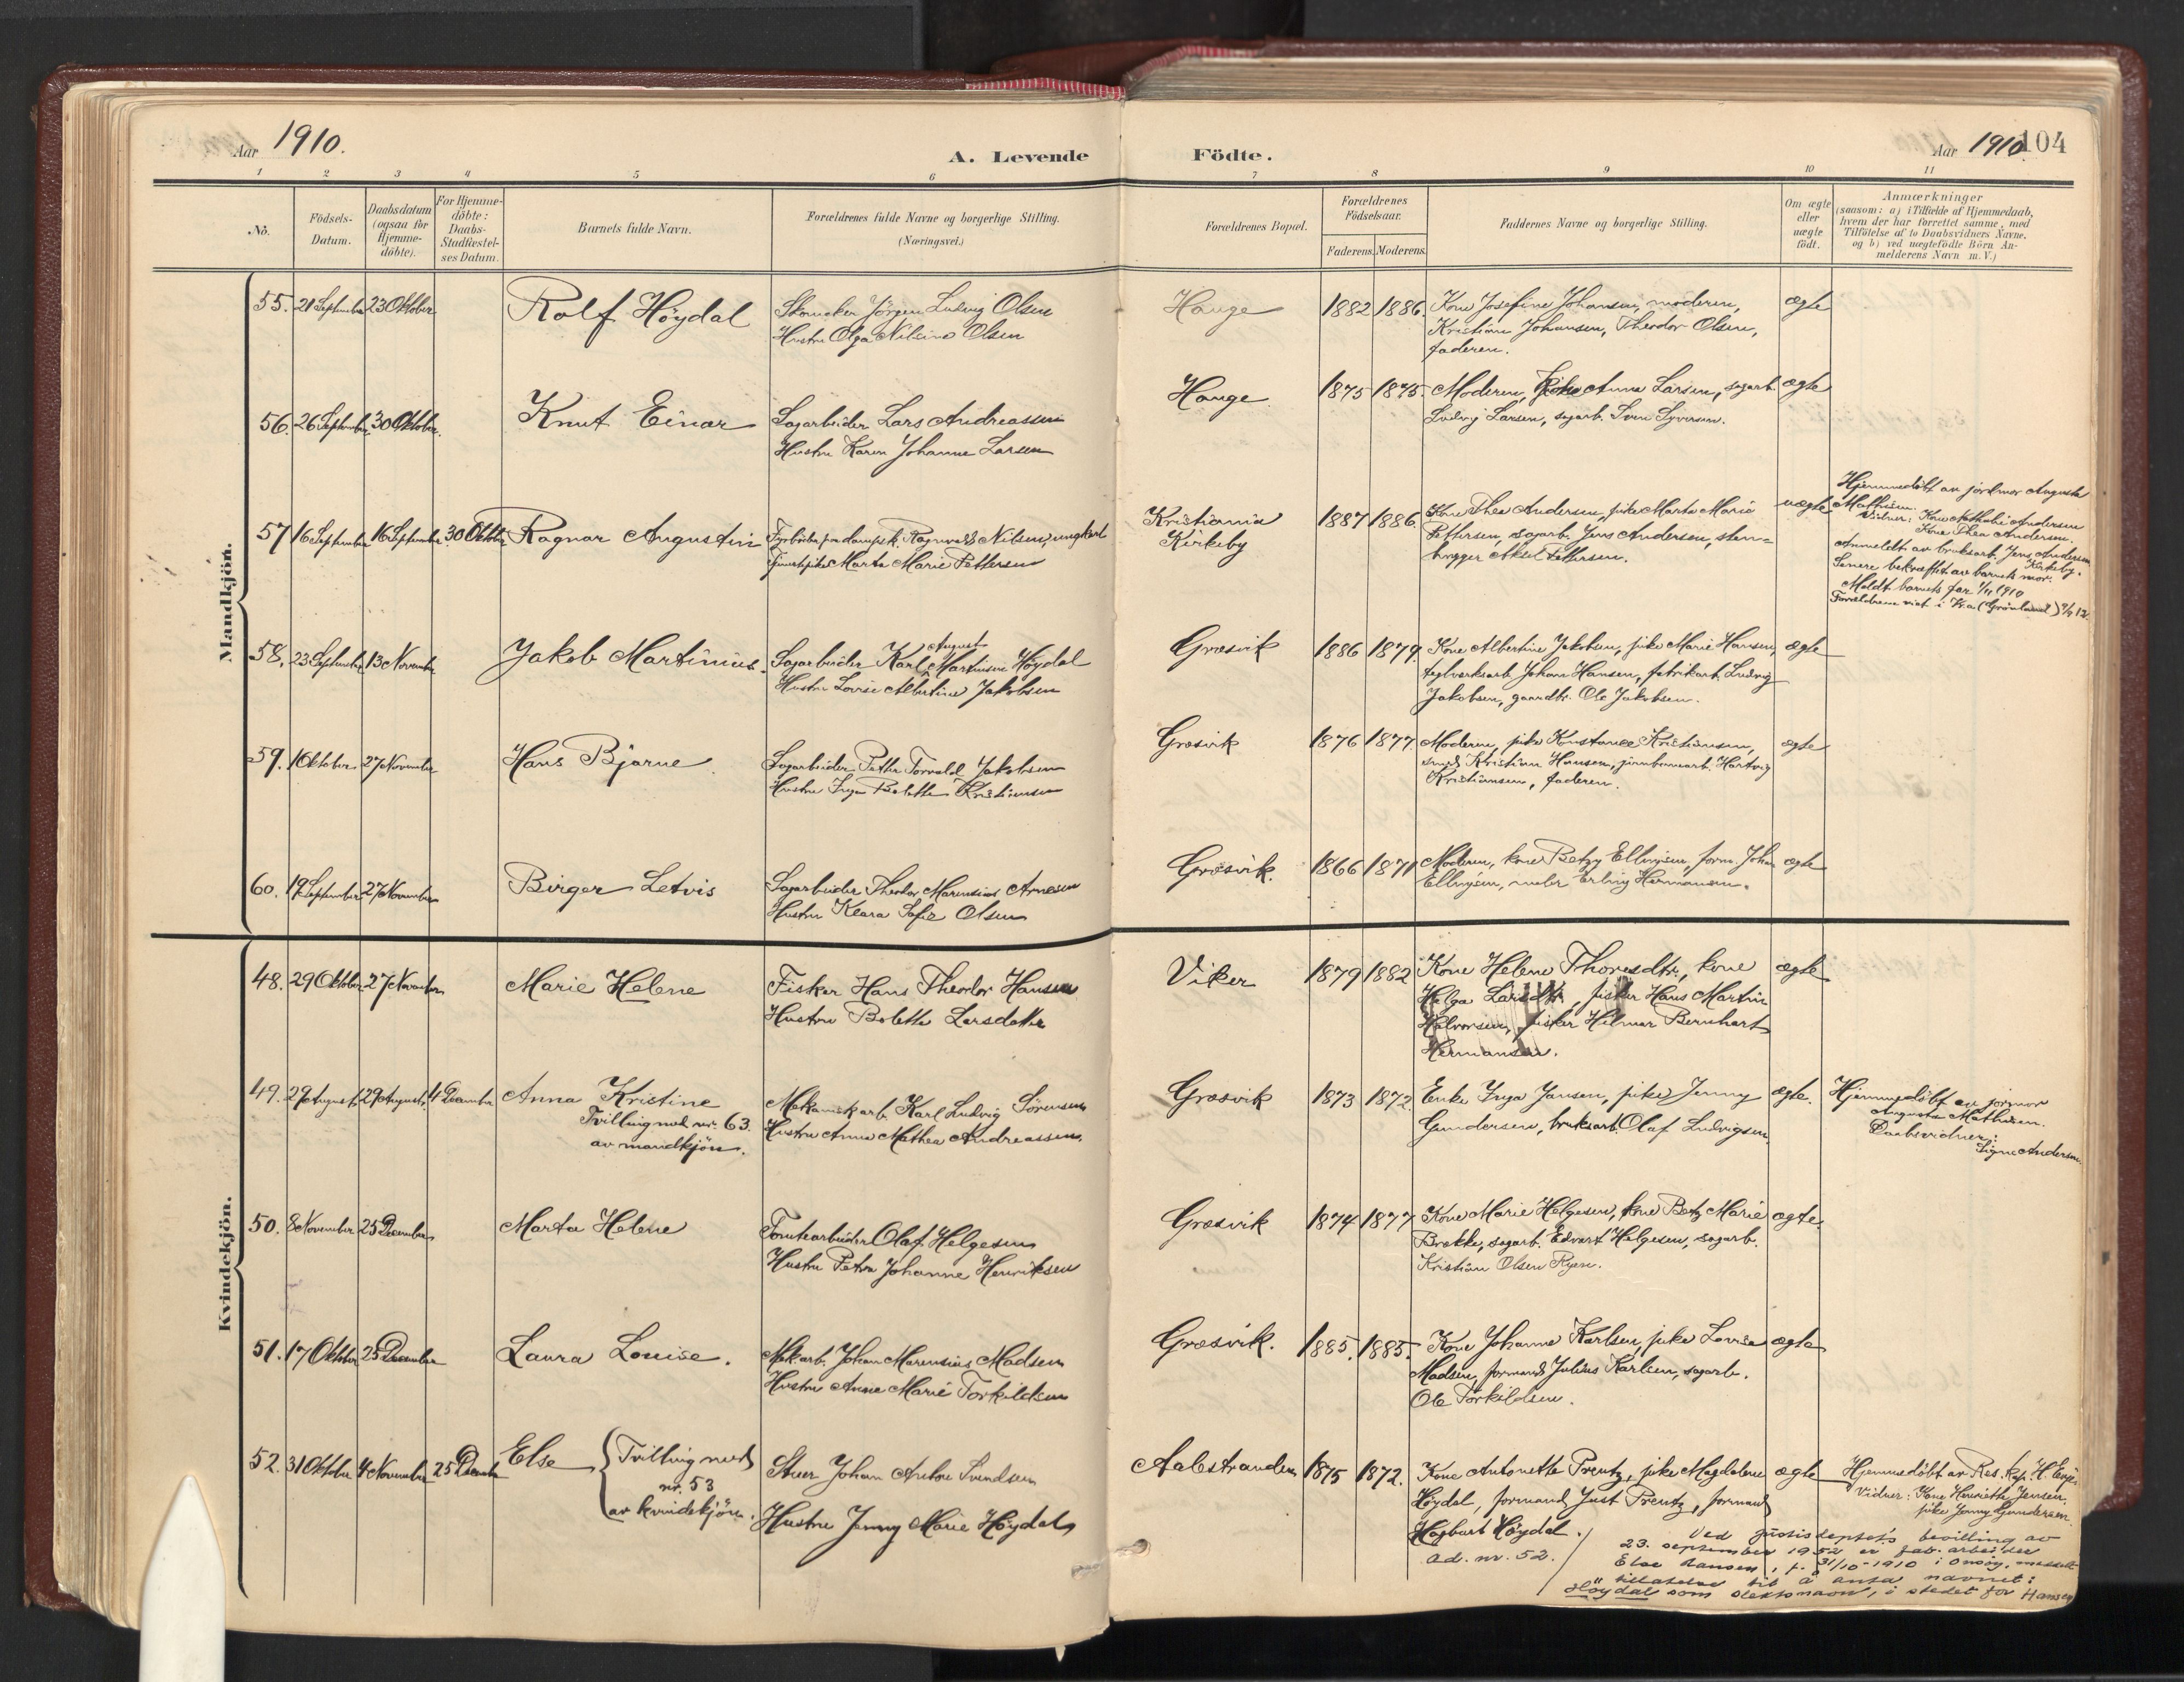 Aar 1910.
A. Levende
Födte.
Aar 1910 104
1 2 3 4 5 6 7 8 9 10 11
No.
Födsels-
Datum.
Daabsdatum
(ogsaa for
Hjemme-
döbte).
For Hjemme-
döbte:
Daabs-
Stadfæstel-
ses Datum.
Barnets fulde Navn.
Forældrenes fulde Navne og borgerlige Stilling.
(Næringsvei.)
Forældrenes Bopæl.
Forældrenes
Födselsaar.
Faderens. Moderens.
Faddernes Navne og borgerlige Stilling.
Om ægte
eller
uægte
født.
Anmærkninger
(saasom: a) i Tilfælde af Hjemmedaab,
hvem der har forrettet samme, med
Tilföielse af to Daabsvidners Navne.
og b) ved uægtefödte Börn An-
melderens Navn m. V.)
Mandkjön.
55. 21 September 23 Oktober
Rolf Höydal
Skomaker Jörgen Ludvig Olsen
Hustru Olga Nilsine Olsen
Hauge
1882 1886.
Kone Josefine Johansen, moderen,
Kristian Johansen, Theodor Olsen,
faderen.
ægte
56. 26 September 30 Oktober.
Knut Einar
Sagarbeider Lars Andreassen
Hustru Karen Johanne Larsen
Hauge.
1875 1875.
Moderen, pike Anna Larsen, sagarb.
Ludvig Larsen, sagarb. Sven Syversen.
ægte
57 16 September 16 September 30 Oktober
Ragnar Augustin
Fyrböter paa dampsk. Ragnvald Nilsen, ungkarl
Tjenestepike Marte Marie Pettersen
Kristiania
Kirkeby
1887 1886.
Kone Thea Andersen, pike Marte Marie
Pettersen, sagarb. Jens Andersen, sten-
hugger Aksel Pettersen.
uægte
Hjemmedöbt av jordmor Augusta
Mathisen.
Vidner: Kone Nathalie Andersen
Kone Thea Andersen.
Anmeldt av bruksarb. Jens Andersen
Kirkeby.
Senere bekræftet av barnets mor.
Meldt barnets far 1/11 1910
Forældrene viet i Kr.a (Grönland)
58. 23 September 13 November
Jakob Martinius.
August
Sagarbeider Karl Martinsen Höydal
Hustru Lovise Albertine Jakobsen
Græsvik
1886 1879.
Kone Albertine Jakobsen, pike Marie Hansen,
teglverksarb. Johan Hansen, fabrikarb. Ludvig
Jakobsen, gaardbr. Ole Jakobsen.
ægte
59. 1 Oktober 27 November
Hans Bjarne
Sagarbeider Petter Torvald Jakobsen
Hustru Inga Bolette Kristiansen
Græsvik
1876 1877.
Moderen, pike Konstance Kristiansen,
smed Kristian Hansen, jernbanearb. Hartvig
Kristiansen, faderen.
ægte
60. 19 September 27 November
Birger Letvis
Sagarbeider Theodor Marensius Arnesen
Hustru Klara Sofie Olsen
Græsvik.
1866 1871
Moderen, kone Betzy Ellingsen, form. Johan
Ellingsen, maler Erling Hermansen.
ægte
Kvindekjön.
48. 29 Oktober 27 November
Marie Helene
Fisker Hans Theodor Hansen
Hustru Bolette Larsdatter
Viker
1879 1882
Kone Helene Thoresdtr., kone
Helga Larsdtr., fisker Hans Martin
Halvorsen, fisker Hilmar Bernhart
Hermansen.
ægte
49. 29 August 29 August 4 December
Anna Kristine
Tvilling med nr. 63.
av mandkjön.
Mekanisk arb. Karl Ludvig Sörensen
Hustru Anna Mathea Andreassen.
Græsvik
1873 1872.
Enke Inga Jansen, pike Jenny
Gundersen, bruksarb. Olaf Ludvigsen.
ægte.
Hjemmedöbt av jormor
Augusta Mathisen.
Daabsvidner:
Signe Andersen.
50. 8 November 25 December
Marta Helene
Tomtearbeider Olaf Helgesen
Hustru Petra Johanne Henriksen
Græsvik
1874 1877
Kone Marie Helgesen, kone Betzy Marie
Brække, sagarb. Edvart Helgesen, sagarb.
Kristian Olsen Ryen.
ægte.
51. 17 Oktober 25 December
Laura Louise.
Mek. arb. Johan Marensius Madsen
Hustru Anne Marie Torkildsen
Græsvik.
1885. 1885.
Kone Johanne Karlsen, pike Lovise
Madsen, formand Julius Karlsen, sagarb.
Ole Torkildsen.
ægte
52. 31 Oktober 4 November 25 December
Else
Tvilling med
nr. 53
av kvindekjön.
Stuer Johan Anton Svendsen
Hustru Jenny Marie Höydal
Aalestranden
1875 1872.
Kone Antonette Prentz, pike Magdalene
Höydal, formand Just Prentz, formand
Hagbart Höydal.
ægte
Hjemmedöbt av Res. kap. H.
Vidner: Kone Henriette Jensen,
pike Jenny Gundersen.
ad. nr. 52.
Ved justisdeptets bevilling av
23. september 1952 er fab. arbeider
Else Hansen, f. 31/10-1910 i Onsøy, meddelt
tillatelse til å anta navnet:
Höydal som slektsnavn, i stedet for Hansen